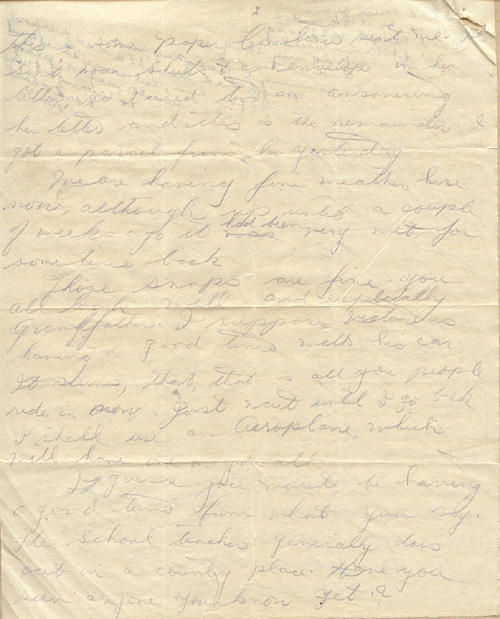 2
This is some paper Constance sent me. She
sent four sheets & an envelope in her
letter and I used two on answering
her letter and this is the remainder I
got a parcel from her yesterday
We are having fine weather here
now, although up until a couple
of weeks ago it had been very wet for
some time back
Those snaps are fine, you
all look well and especially
Grandfather. I suppose is
having a good time with his car
It seems, that, that is all you people
ride in now. Just wait until I go back
I shall use an Aeroplane, which
will have one on you all
I guess you must be having
a good time from what you say.
The School teacher generally does
out in a country place. Have you
seen anyone you know yet?